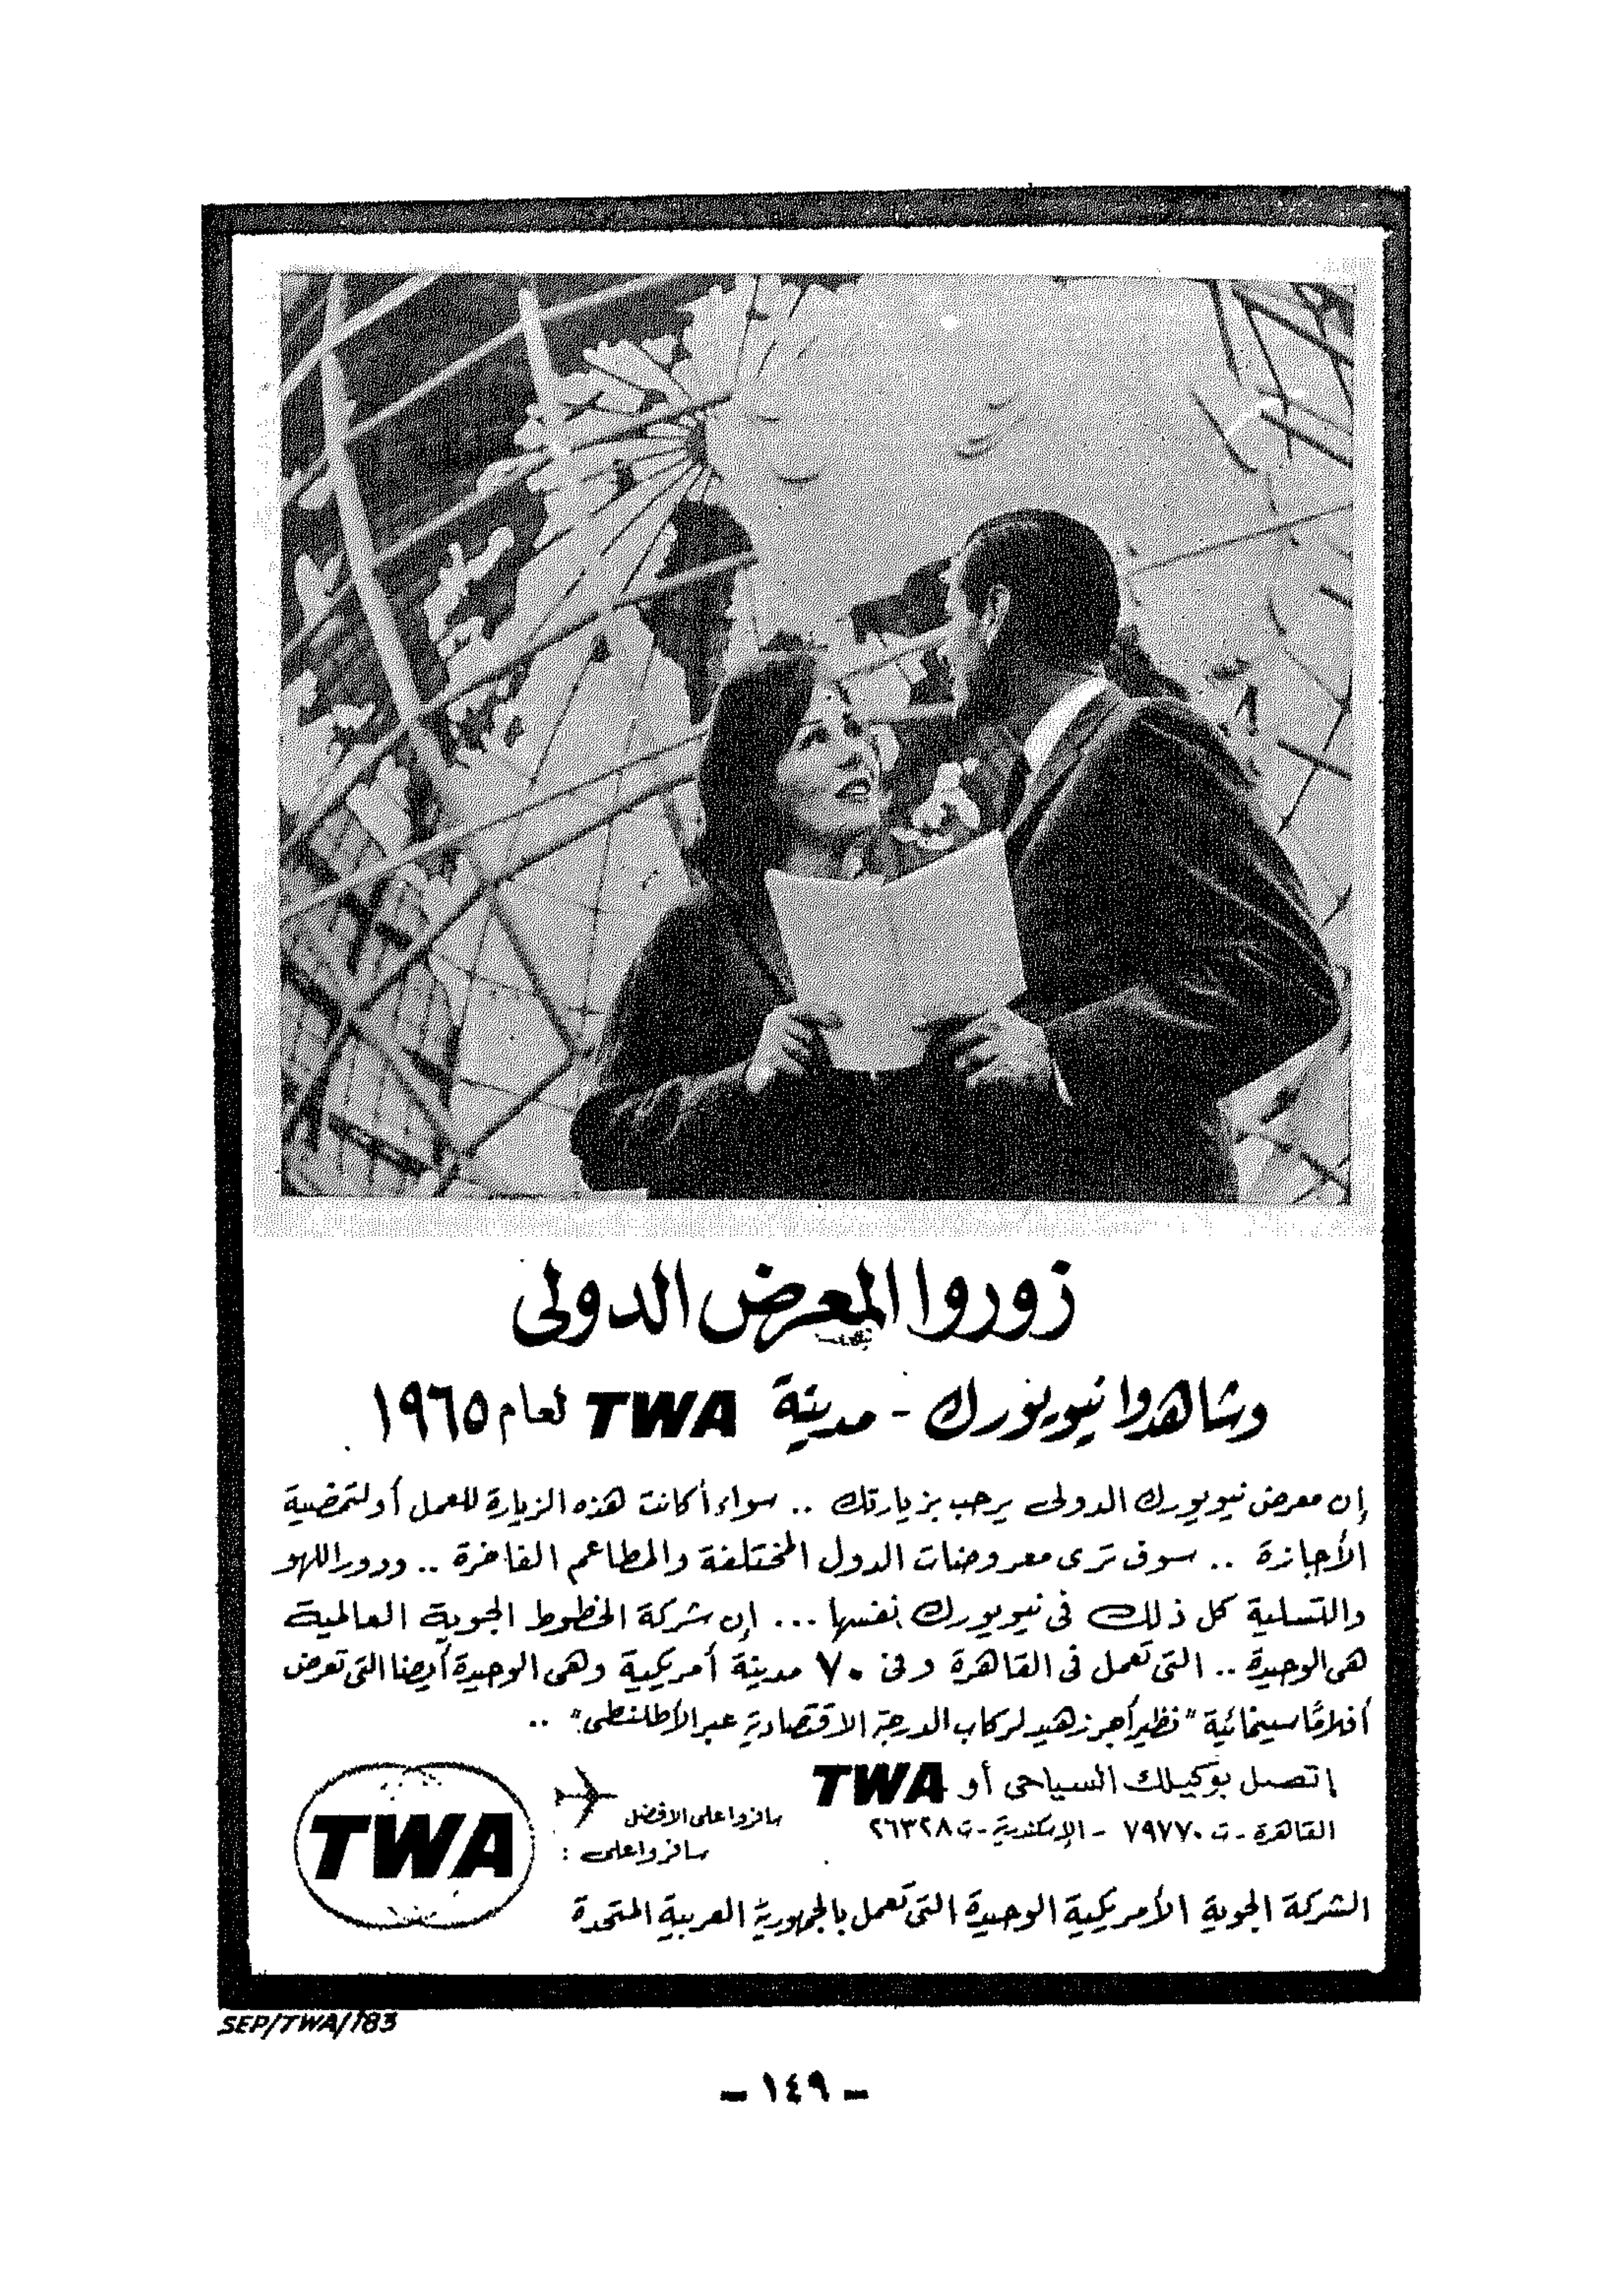 زوروا المعرض الدولى
وشاهدوا نيويورك - مدينة TWA لعام ١٩٦٥
إن معرض نيويورك الدولى يرحب بزيارتك .. سواء أكانت هذه الزيارة للعمل أو لتمضية
الأجازة .. سوف ترى معروضات الدول المختلفة والمطاعم الفاخرة .. ودور اللهو
والتسلية كل ذلك فى نيويورك نفسها ... إن شركة الخطوط الجوية العالمية
هى الوحيدة .. التى تعمل فى القاهرة وفى ٧٠ مدينة أمريكية وهى الوحيدة أيضا التى تعرض
أفلامًا سينمائية "نظير أجر زهيد لركاب الدرجة الاقتصادية عبر الأطلنطى" ..
إتصل بوكيلك السياحى أو TWA
القاهرة - ت ٧٩٧٧٠ - الإسكندرية - ت ٢٦٣٢٨
سافروا على الافضل
سافروا على :
TWA
الشركة الجوية الأمريكية الوحيدة التى تعمل بالجمهورية العربية المتحدة
SEP/TWA/183
- ١٤٩ -